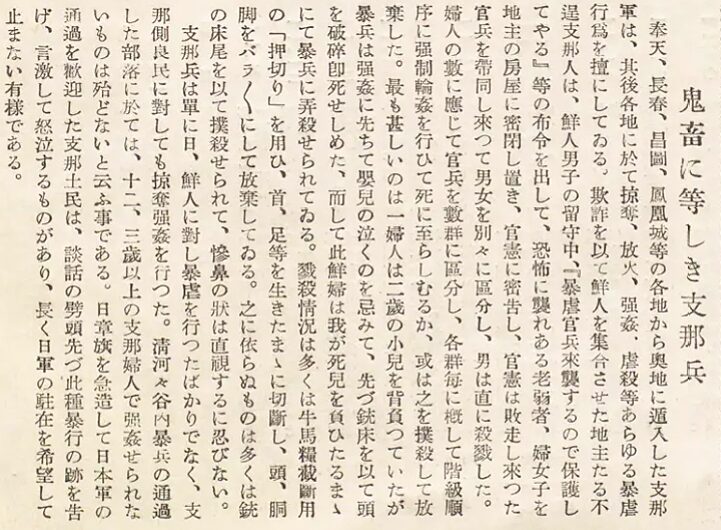 鬼畜に等しき支那兵
奉天、長春、昌圖、鳳凰城等の各地から奥地に遁入した支那
軍は、其後各地に於て掠奪、放火、强姦、虐殺等あらゆる暴虐
行爲を擅にしてゐる。欺詐を以て鮮人を集合させた地主たる不
逞支那人は、鮮人男子の留守中、『暴虐官兵來襲するので保護し
てやる』等の布令を出して、恐怖に襲れある老弱者、婦女子を
地主の房屋に密閉し置き、官憲に密告し、官憲は敗走し來つた
官兵を帶同し來つて男女を別々に區分し、男は直に殺戮した。
婦人の數に應じて官兵を數群に區分し、各群每に概して階級順
序に强制輪姦を行ひて死に至らしむるか、或は之を撲殺して放
棄した。最も甚しいのは一婦人は二歲の小兒を背負つていたが
暴兵は强姦に先ちて嬰兒の泣くのを忌みて、先づ銃床を以て頭
を破碎卽死せしめた、而して此鮮婦は我が死兒を負ひたるまゝ
にて暴兵に弄殺せられてゐる。戮殺情況は多くは牛馬糧截斷用
の「押切り」を用ひ、首、足等を生きたまゝに切斷し、頭、胴
脚をバラ〱にして放棄してゐる。之に依らぬものは多くは銃
の床尾を以て撲殺せられて、慘鼻の狀は直視するに忍びない。
支那兵は單に日、鮮人に對し暴虐を行つたばかりでなく、支
那側良民に對しても掠奪强姦を行つた。淸河々谷內暴兵の通過
した部落に於ては、十二、三歲以上の支那婦人で强姦せられな
いものは殆どないと云ふ事である。日章旗を急造して日本軍の
通過を歡迎した支那土民は、談話の劈頭先づ此種暴行の跡を吿
げ、言激して怒泣するものがあり、長く日軍の駐在を希望して
止まない有樣である。